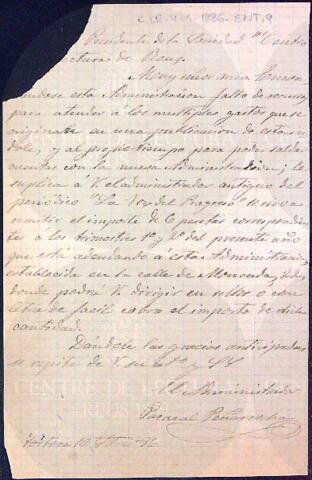 C.LR-4-1. 1886-ENT, 9
Presidente de la Sociedad "Centro
Lecturas de Reus.
Muy señor mio: Encon
trándose esta Administracion falta de recursos
para atender á los multiples gastos que se
originan en una publicacion de esta ín
dole, y al propio tiempo para poder saldar
cuentas con la nueva Administracion; le
suplica á V. el administrador antiguo del
periódico "La Voz del
se sirva
remitir el importe de 6 pesetas correspondien
tes á los trimestres 1º y 2º del presente año
que está adeudando á esta Administracion
establecida en la calle de Moncada,
donde podrá V. dirigir en sellos o con
letra de fácil cobro el importe de dicha
cantidad.
Dandole las gracias anticipadas
se repite de V. su atº y SS
El Administrador
Pascual
10
86
CENTRE DE LECTURA
REUS